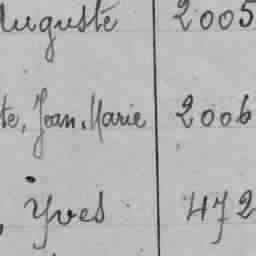 Auguste 2005
te, Jean, Marie 2006
, Yves 472